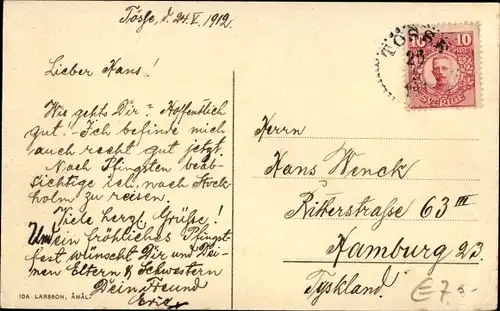 Tösse, d. 24. V. 1912.
Lieber Hans!
Wie gehts Dir? Hoffentlich
gut. Ich befinde mich
auch recht gut jetzt.
Nach Pfingsten beab-
sichtige ich, nach Stock-
holm zu reisen.
Viele herzl. Grüße!
Und ein fröhliches Pfingst-
fest wünscht Dir und Dei-
nen Eltern & Schwestern
Dein Freund
Eric
IDA LARSSON, ÅMÅL.
TÖSSE
10 10
SVERIGE
Herrn
Hans Wenck
Ritterstraße 63 III
Hamburg 23.
Tyskland.
€ 7.-